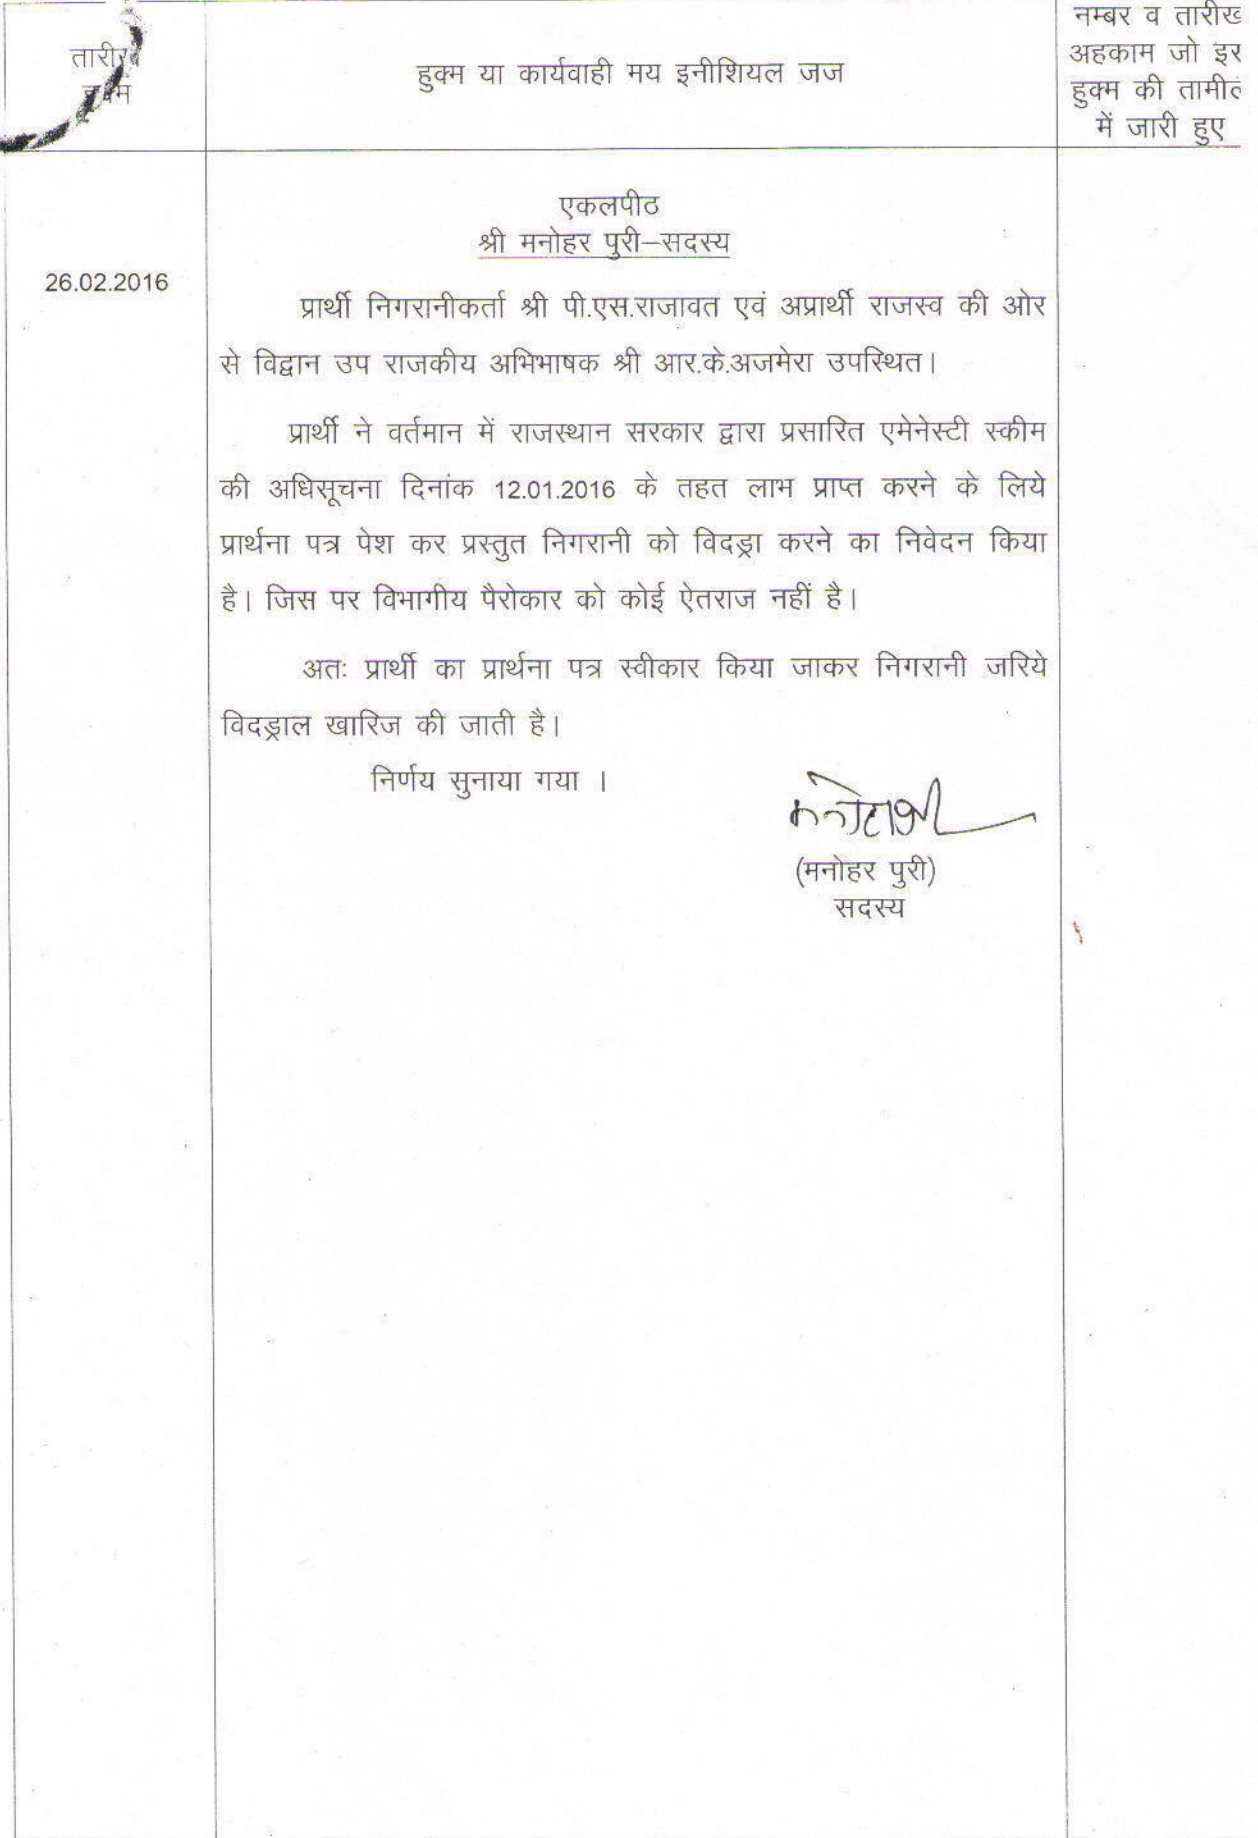 तारीख
हुक्म
हुक्म या कार्यवाही मय इनीशियल जज
नम्बर व तारीख
अहकाम जो इस
हुक्म की तामील
में जारी हुए
एकलपीठ
श्री मनोहर पुरी–सदस्य
26.02.2016
प्रार्थी निगरानीकर्ता श्री पी.एस.राजावत एवं अप्रार्थी राजस्व की ओर
से विद्वान उप राजकीय अभिभाषक श्री आर.के.अजमेरा उपस्थित।
प्रार्थी ने वर्तमान में राजस्थान सरकार द्वारा प्रसारित एमेनेस्टी स्कीम
की अधिसूचना दिनांक 12.01.2016 के तहत लाभ प्राप्त करने के लिये
प्रार्थना पत्र पेश कर प्रस्तुत निगरानी को विदड्रा करने का निवेदन किया
है। जिस पर विभागीय पैरोकार को कोई ऐतराज नहीं है।
अतः प्रार्थी का प्रार्थना पत्र स्वीकार किया जाकर निगरानी जरिये
विदड्राल खारिज की जाती है।
निर्णय सुनाया गया ।
(मनोहर पुरी)
सदस्य